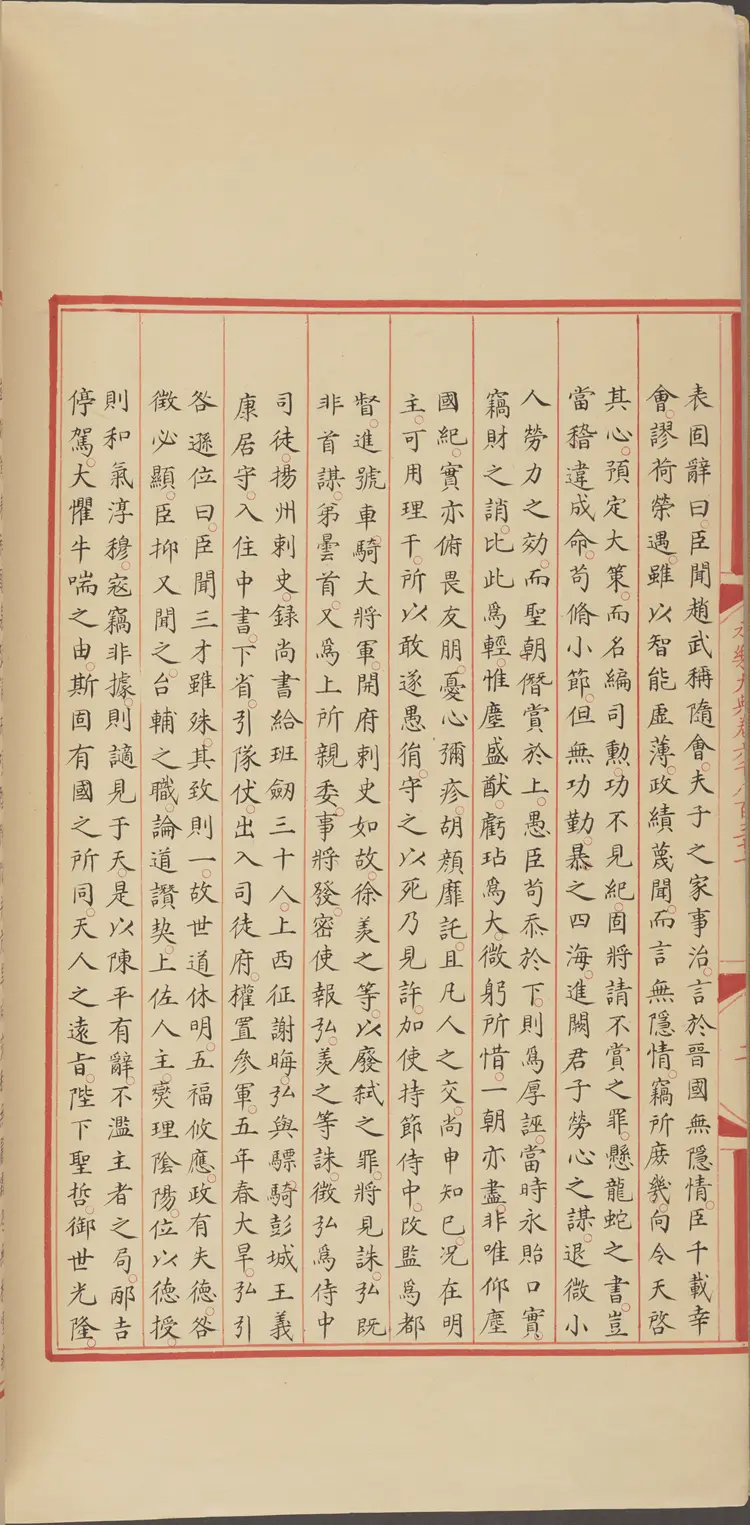 表固辭曰臣聞趙武稱隨會夫子之家事治言於晉國無隱情臣千載幸
會謬荷榮遇雖以智能虛薄政績蔑聞而言無隱情竊所庶幾向令天啓
其心預定大策而名編司勳功不見紀固將請不賞之罪懸龍蛇之書豈
當稽違成命苟脩小節但無功勤暴之四海進闕君子勞心之謀退微小
人勞力之効而聖朝僭賞於上愚臣苟忝於下則爲厚誣當時永貽口實
竊財之誚比此爲輕惟塵盛猷虧玷爲大微躬所惜一朝亦盡非唯仰塵
國紀實亦俯畏友朋憂心彌疹胡顔靡託且凡人之交尚申知已况在明
主可用理干所以敢遂愚狷守之以死乃見許加使持節侍中改監爲都
督進號車騎大將軍開府刺史如故徐羡之等以廢弒之罪將見誅弘既
非首謀弟曇首又爲上所親委事將發密使報弘羡之等誅徵弘爲侍中
司徒揚州刺史録尚書給班劒三十人上西征謝晦弘與驃騎彭城王義
康居守入住中書下省引隊仗出入司徒府權置參軍五年春大旱弘引
咎遜位曰臣聞三才雖殊其致則一故世道休明五福攸應政有失德咎
徵必顯臣抑又聞之台輔之職論道讚契上佐人主燮理陰陽位以德授
則和氣淳穆寇竊非據則謫見于天是以陳平有辭不濫主者之局邴吉
停駕大懼牛喘之由斯固有國之所同天人之遠旨陛下聖哲御世光隆